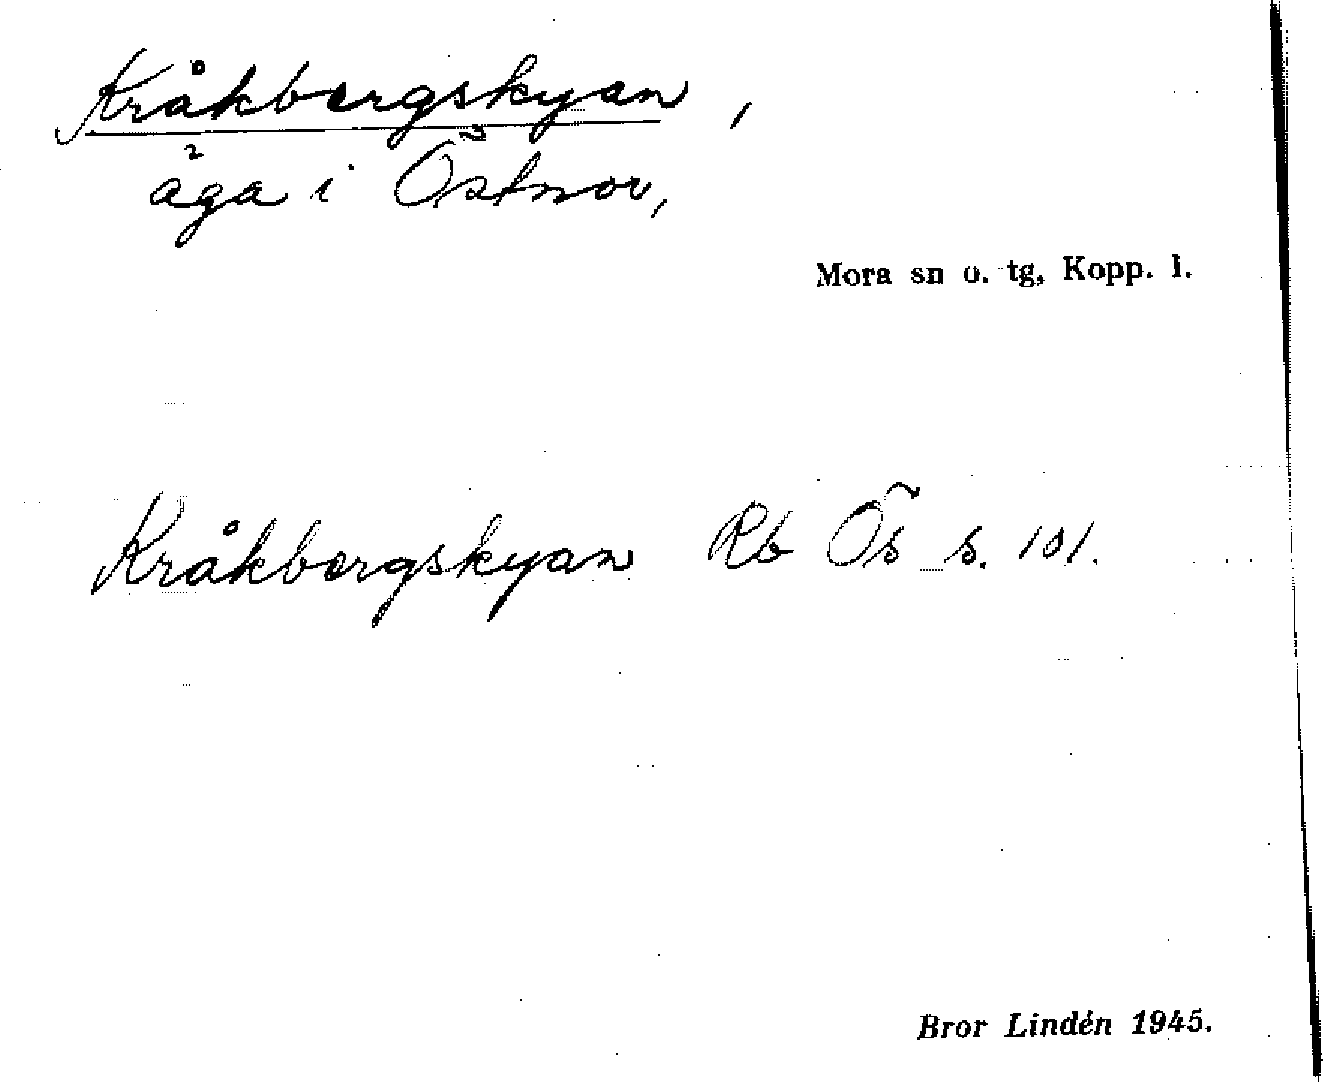 Kråkbergskyan,
äga i Östnor,
Mora sn o. tg, Kopp. l.
Kråkbergskyan Rb Ös s. 101.
Bror Lindén 1945.